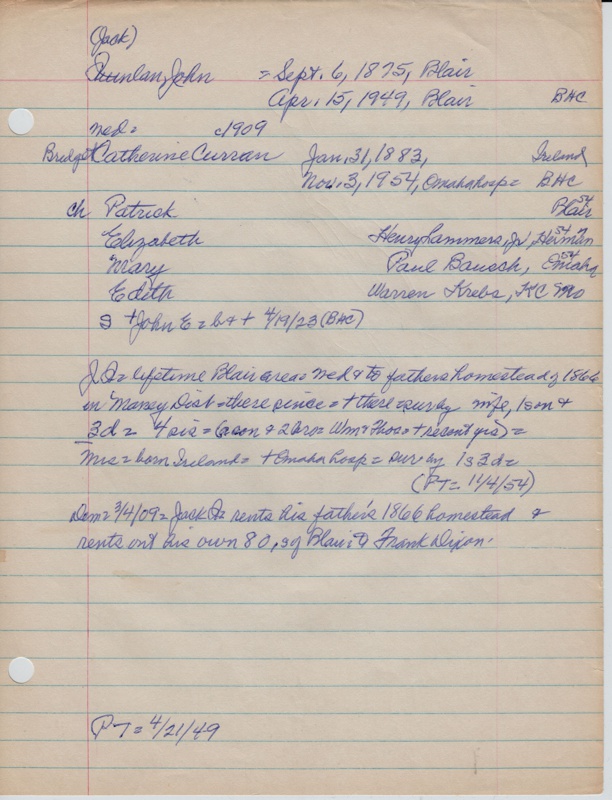 (Jack)
Quinlan, John = Sept. 6, 1875, Blair
Apr. 15, 1949, Blair BHC
Med = c1909
Bridget Catherine Curran Jan. 31, 1883, Ireland
Nov. 3, 1954, Omaha hosp = BHC
ch Patrick Blair 54
Elizabeth Henry Sammers, Jr, Herman 54
Mary Paul Bausch, Omaha 54
Edith Warren Krebs, KC Mo
S + John E = b + + 4/19/23 (BHC)
J. Q = lifetime Blair area = Med & to fathers homestead of 1866
in Money Dist = there since = + there = sur by wife, 1 son &
3 d = 4 sis = (a son & 2 bro = Wm & Thos = + recent yrs) =
Mrs = born Ireland = + Omaha hosp = sur by 1 s 3 d =
(PT = 11/4/54)
Dem = 3/4/09 = Jack Q = rents his father's 1866 homestead &
rents out his own 80, s of Blair to Frank Dixon.
PT = 4/21/49